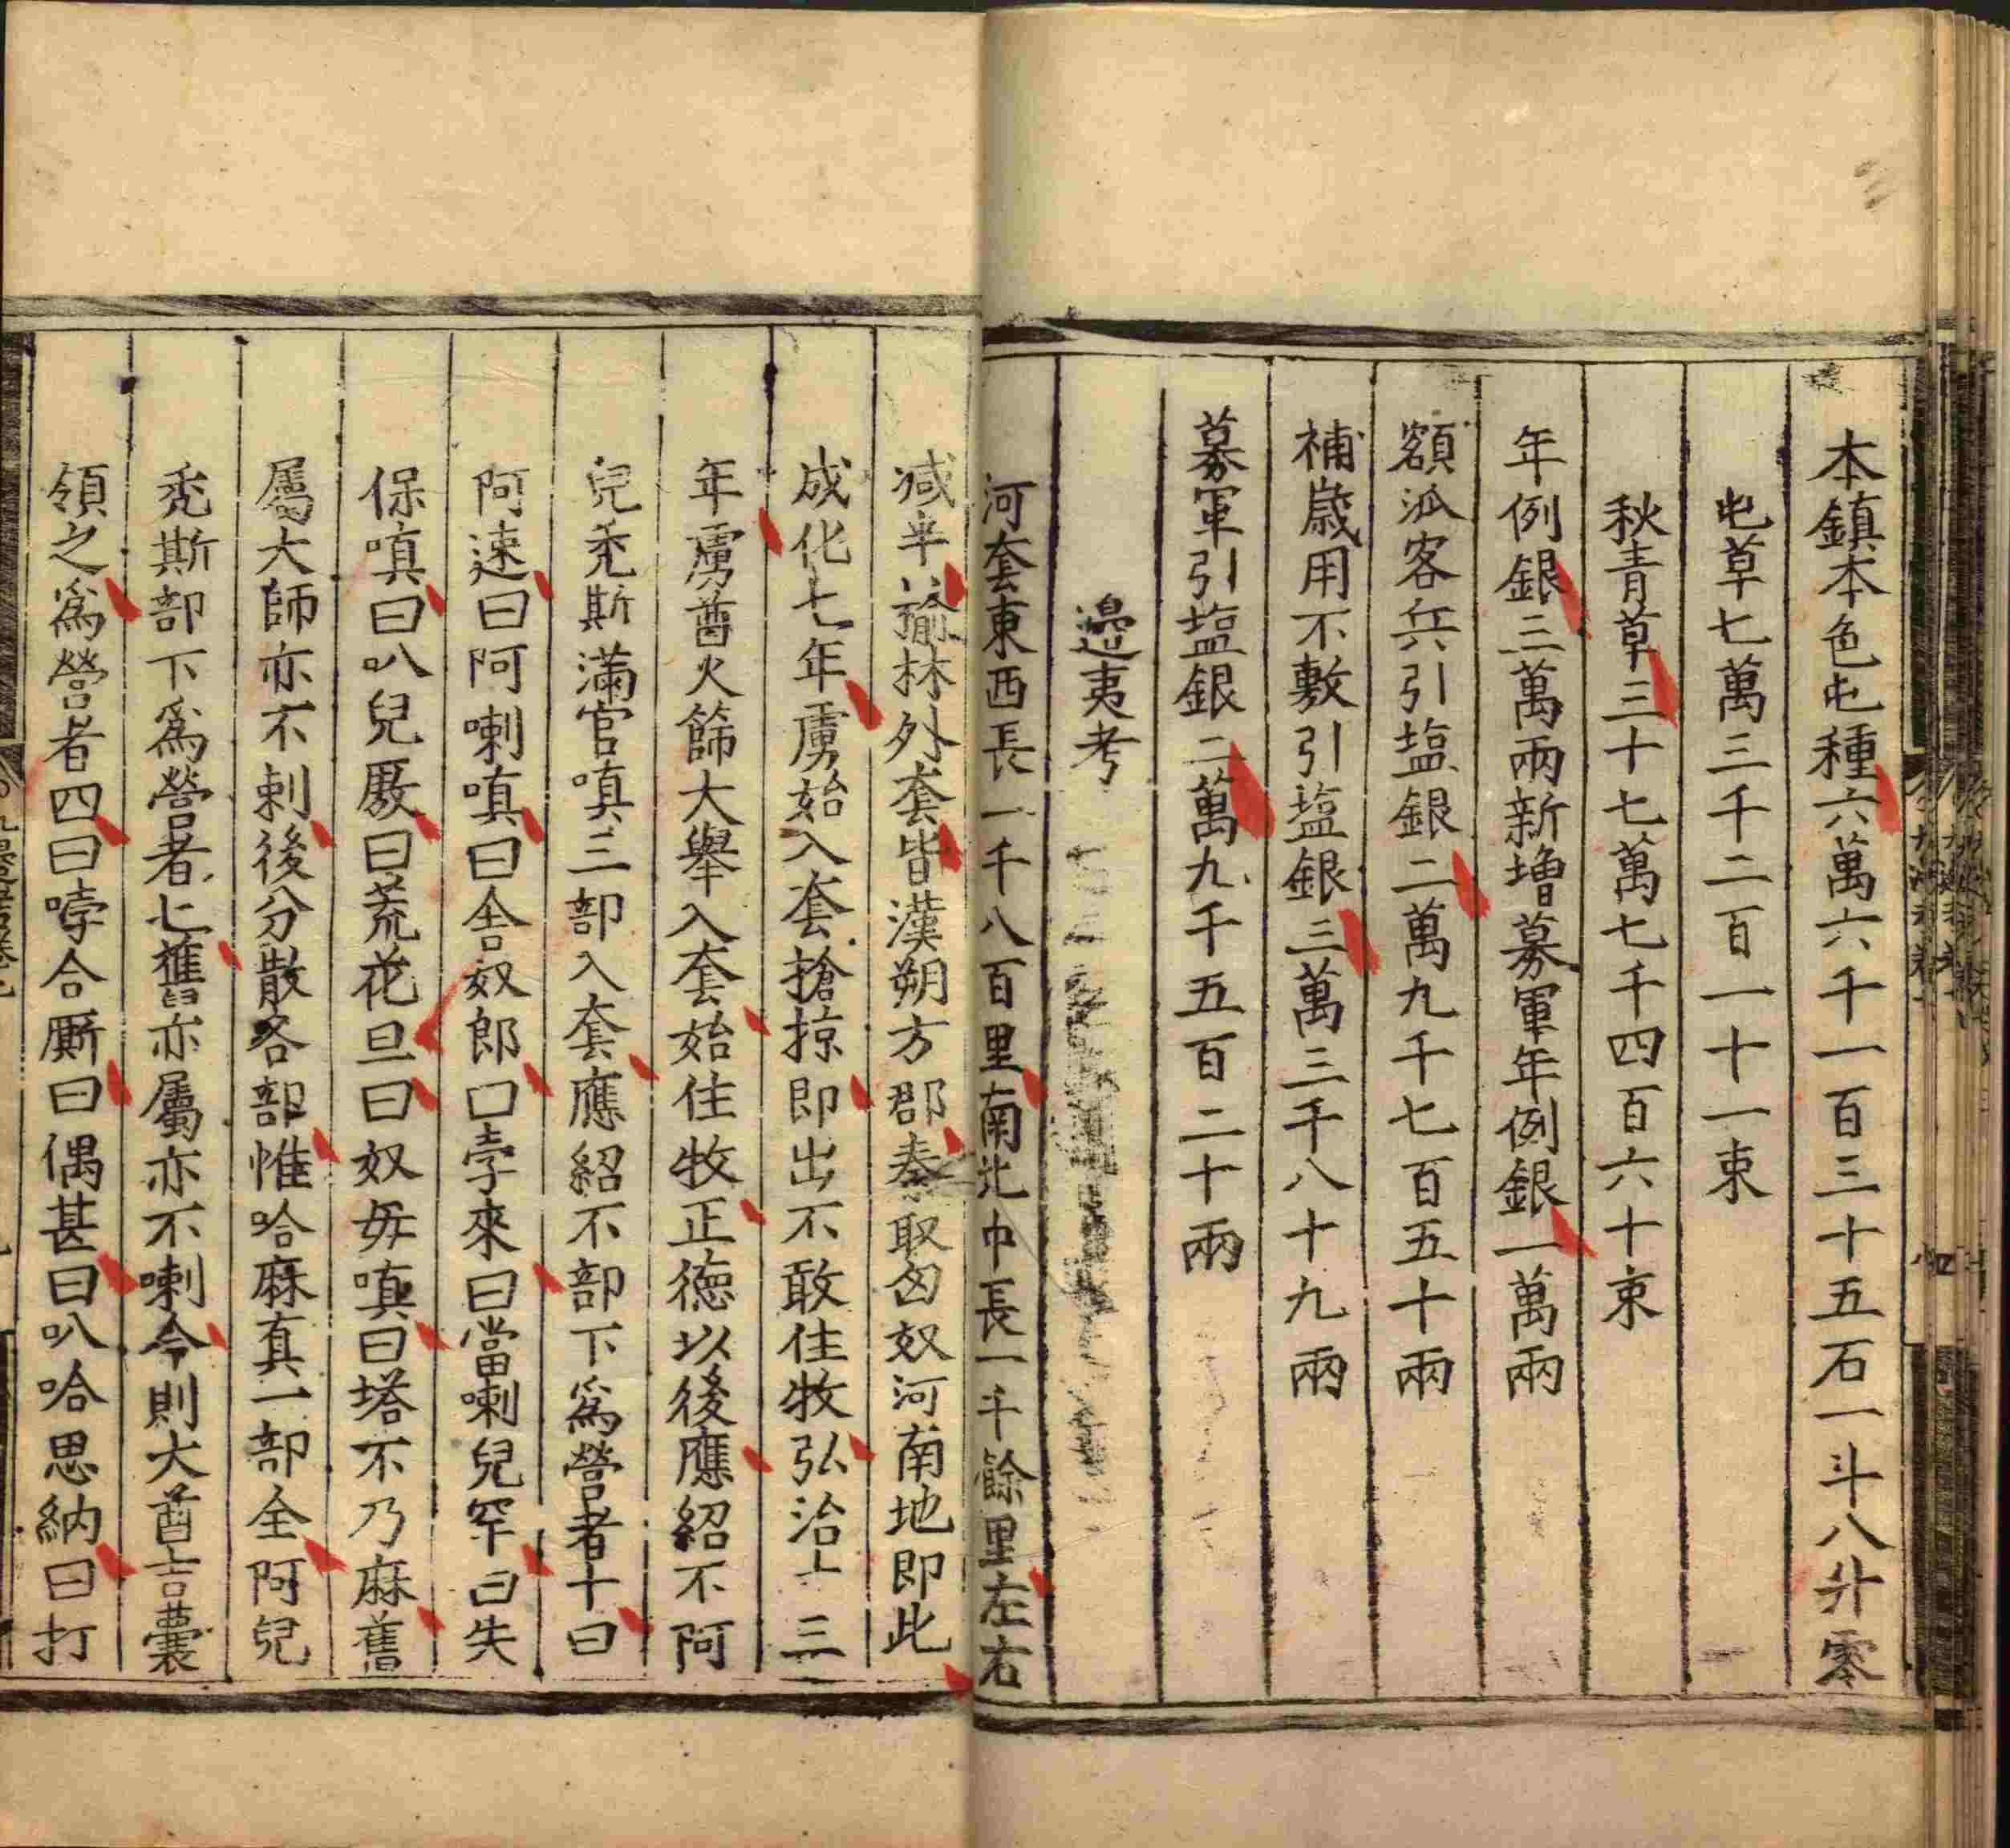 本鎮本色屯種六萬六千一百三十五石一斗八升零
屯草七萬三千二百一十一束
秋青草三十七萬七千四百六十束
年例銀三萬兩新增募軍年例銀一萬兩
額派客兵引塩銀二萬九千七百五十兩
補歲用不敷引塩銀三萬三千八十九兩
募軍引塩銀二萬九千五百二十兩
邊夷考
河套東西長一千八百里南北中長一千餘里左右
減半榆林外套皆漢朔方郡秦取匈奴河南地即此
成化七年虜始入套搶掠即出不敢住牧弘治十三
年虜酋火篩大舉入套始住牧正德以後應紹不阿
兒禿斯滿官嗔三部入套應紹不部下為營者十曰
阿速曰阿喇嗔曰舍奴郎曰孛來曰當喇兒罕曰失
保嗔曰叭兒厫曰荒花旦曰奴毋嗔曰塔不乃麻舊
屬大師亦不剌後分散各部惟哈麻真一部全阿兒
禿斯部下為營者七舊亦屬亦不喇今則大酋吉囊
領之為營者四曰哱合厮曰偶甚曰叭哈思納曰打